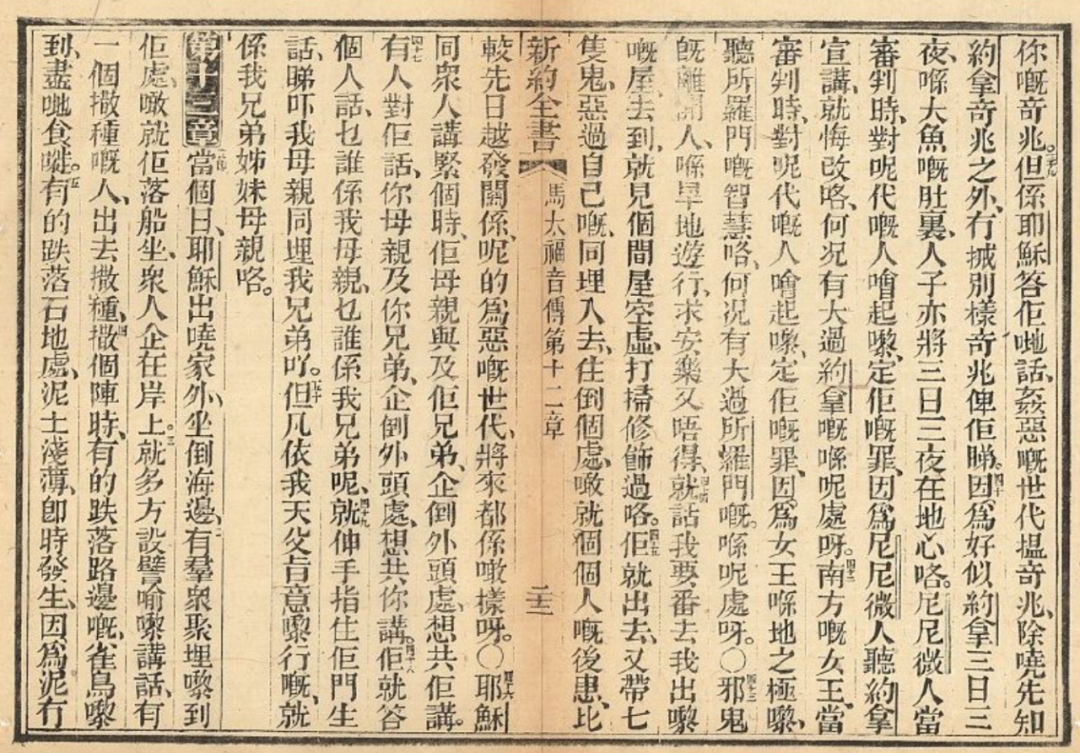 你嘅奇兆。三九但係耶穌答佢哋話、姦惡嘅世代揾奇兆、除嘵先知
約拿奇兆之外、冇搣別樣奇兆俾佢睇。四十因爲好似約拿三日三
夜、喺大魚嘅肚裏、人子亦將三日三夜在地心咯。尼尼微人當
審判時、對呢代嘅人噲起嚟、定佢嘅罪、因爲尼尼微人聽約拿
宣講、就悔改咯、何况有大過約拿嘅喺呢處呀。四二南方嘅女王、當
審判時、對呢代嘅人噲起嚟、定佢嘅罪、因爲女王喺地之極嚟、
聽所羅門嘅智慧咯、何况有大過所羅門嘅、喺呢處呀。〇四三邪鬼
旣離開人、喺旱地遊行、求安樂又唔得、四四就話我要番去我出嚟
嘅屋、去到、就見個間屋空虛、打掃修飾過咯。四五佢就出去、又帶七
隻鬼、惡過自己嘅、同埋入去、住倒個處、噉就個個人嘅後患、比
新約全書 馬太福音傳第十二章
較先日越發關係、呢的爲惡嘅世代、將來都係噉樣呀。〇四六耶穌
同衆人講緊個時、佢母親與及佢兄弟、企倒外頭處、想共佢講。
四七有人對佢話、你母親及你兄弟、企倒外頭處、想共你講。四十八佢就答
個人話、乜誰係我母親、乜誰係我兄弟呢、四九就伸手指住佢門生
話、睇吓我母親同埋我兄弟吖。五十但凡依我天父旨意嚟行嘅、就
係我兄弟姊妹母親咯。
第十三章 一當個日、耶穌出嘵家外、坐倒海邊、二有羣衆聚埋嚟到
佢處、噉就佢落船坐、衆人企在岸上。三就多方設譬喻嚟講話、有
一個撒種嘅人、出去撒種、四撒個陣時、有的跌落路邊嘅、雀鳥嚟
到、盡哋食嘥。五有的跌落石地處、泥土淺薄、卽時發生、因爲泥冇